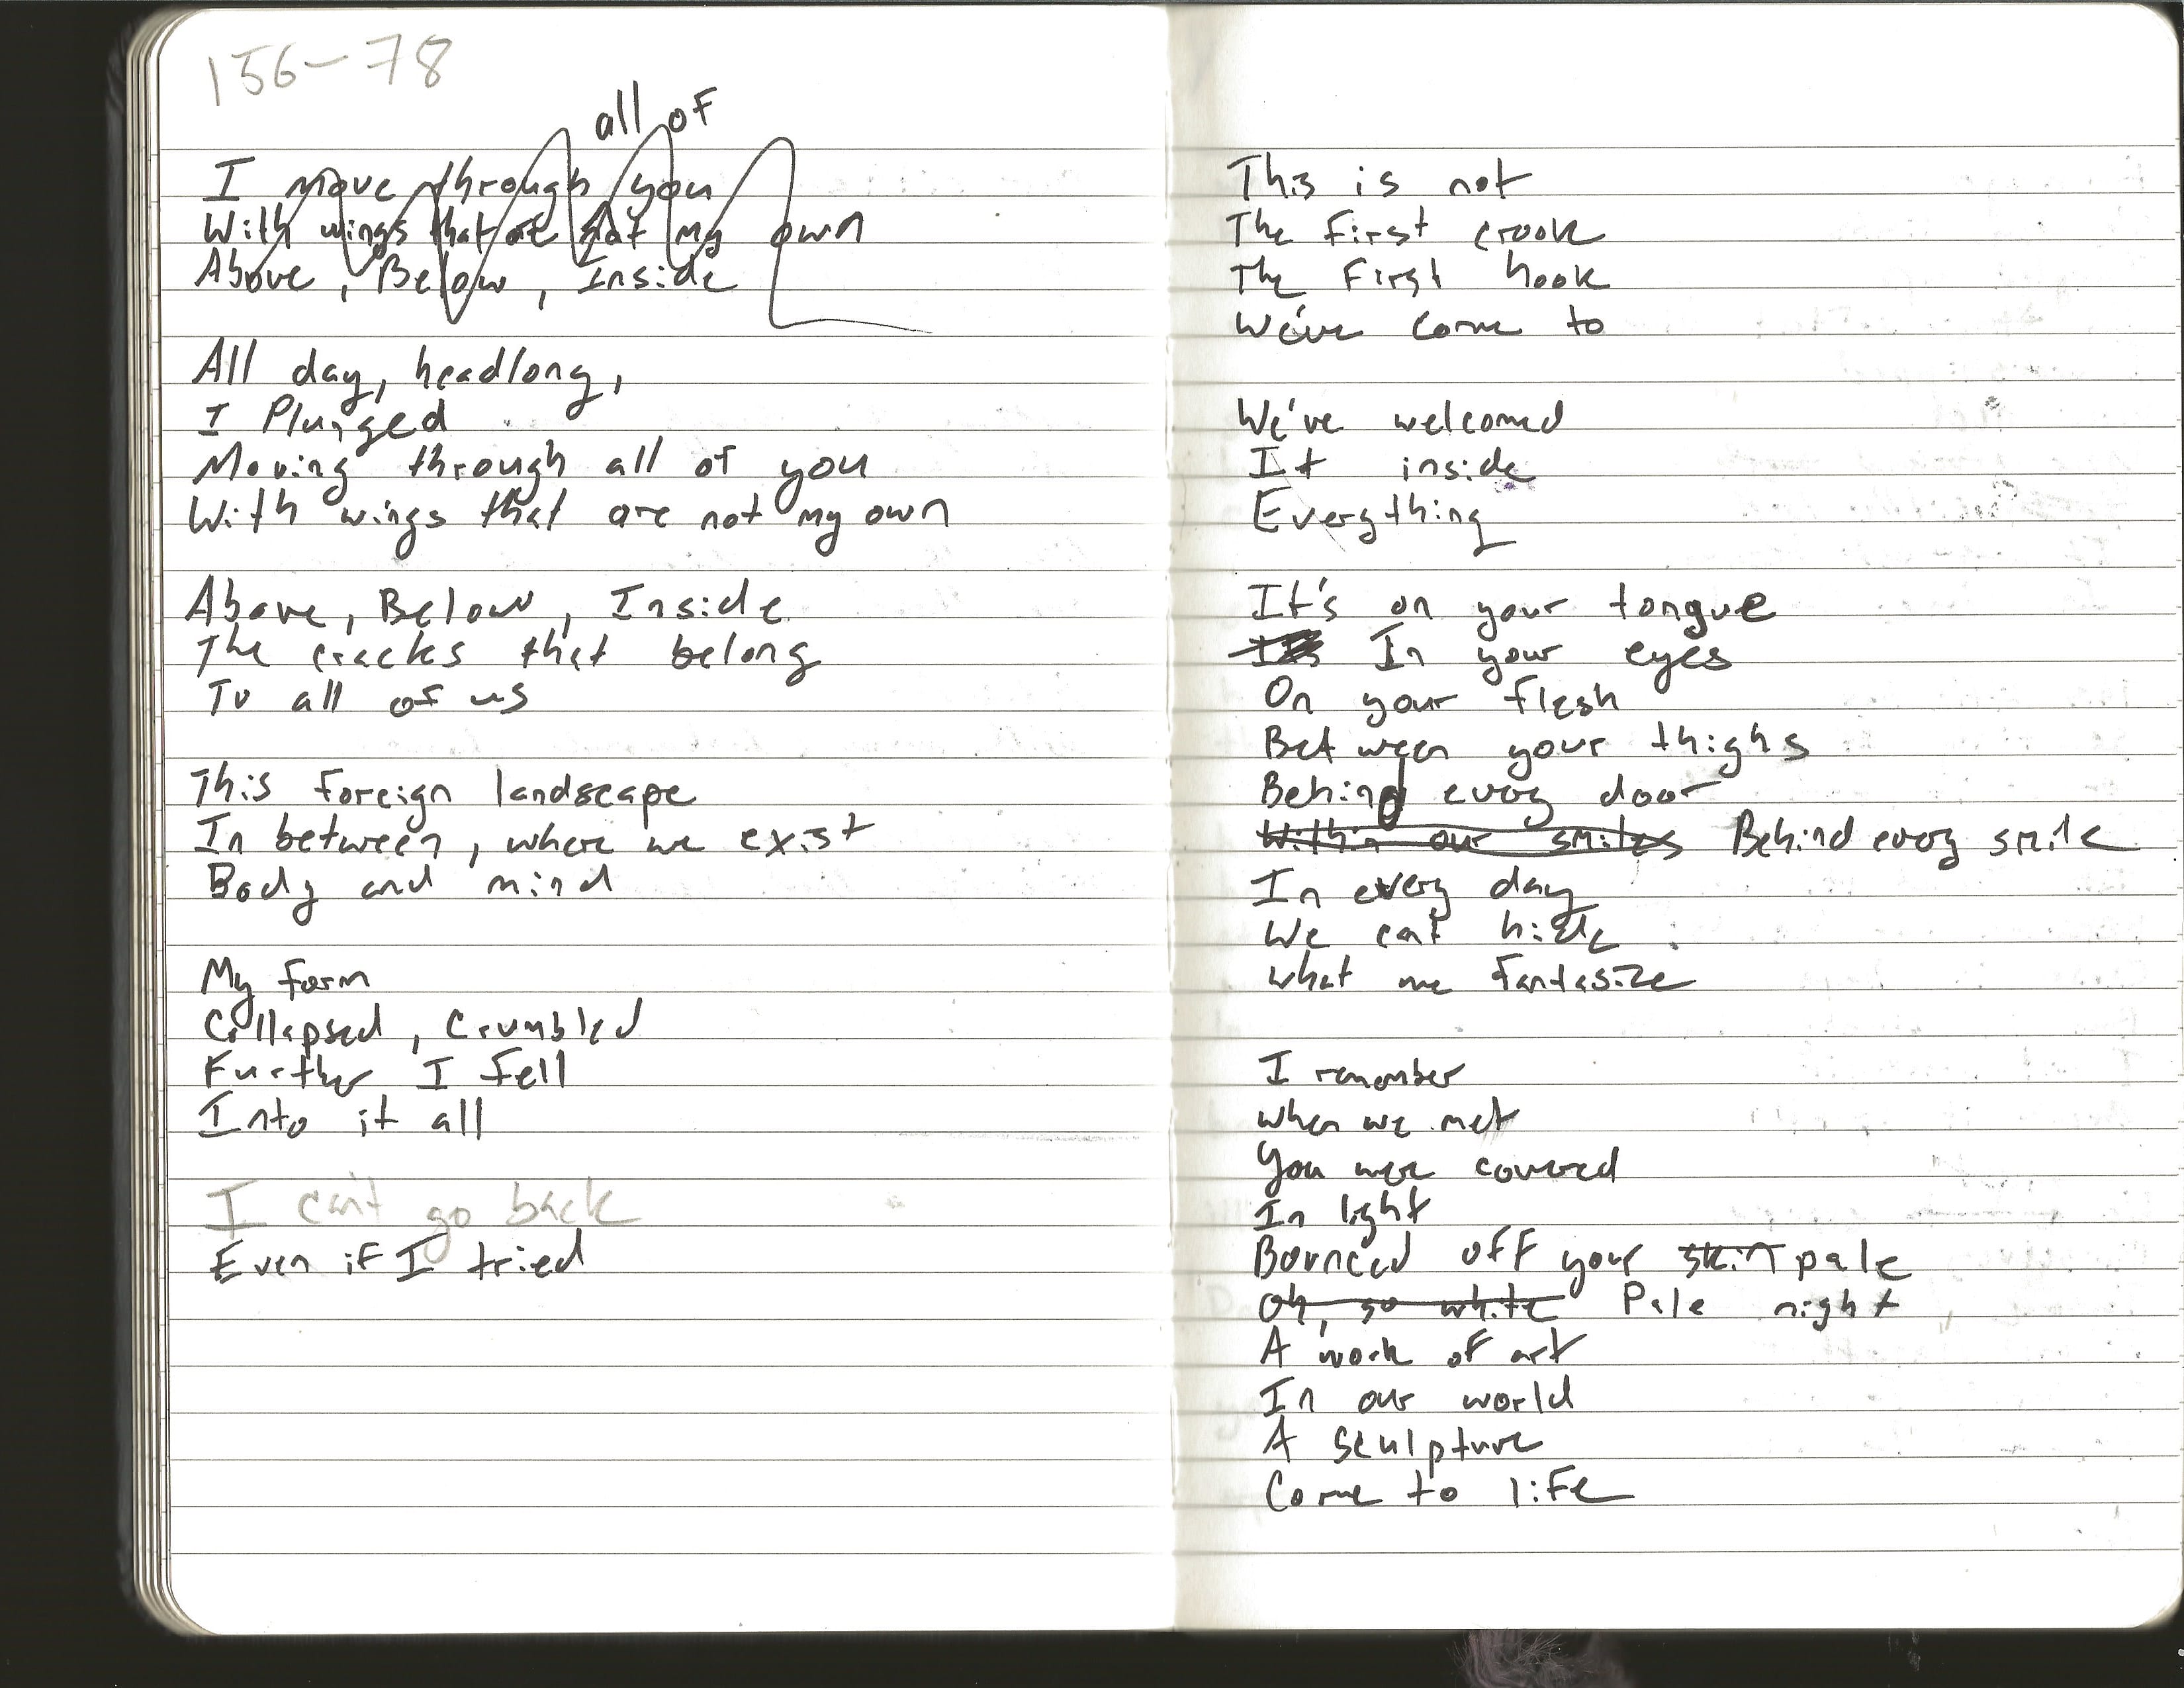 156-78
all of
I move through you
With wings that are not my own
Above, Below, Inside
All day, headlong,
I Plunged
Moving through all of you
With wings that are not my own
Above, Below, Inside
The cracks that belong
To all of us
This foreign landscape
In between, where we exist
Body and mind
My form
Collapsed, Crumbled
Further I fell
Into it all
I can't go back
Even if I tried
This is not
The first crook
The First hook
We've come to
We've welcomed
It inside
Everything
It's on your tongue
In your eyes
On your flesh
Between your thighs
Behind every door
Within our smiles Behind every smile
In every day
We cat hide
what we Fantasize
I remember
when we met
You were covered
In light
Bounced off your skin pale
Oh, so white Pale night
A work of art
In our world
A sculpture
Come to life